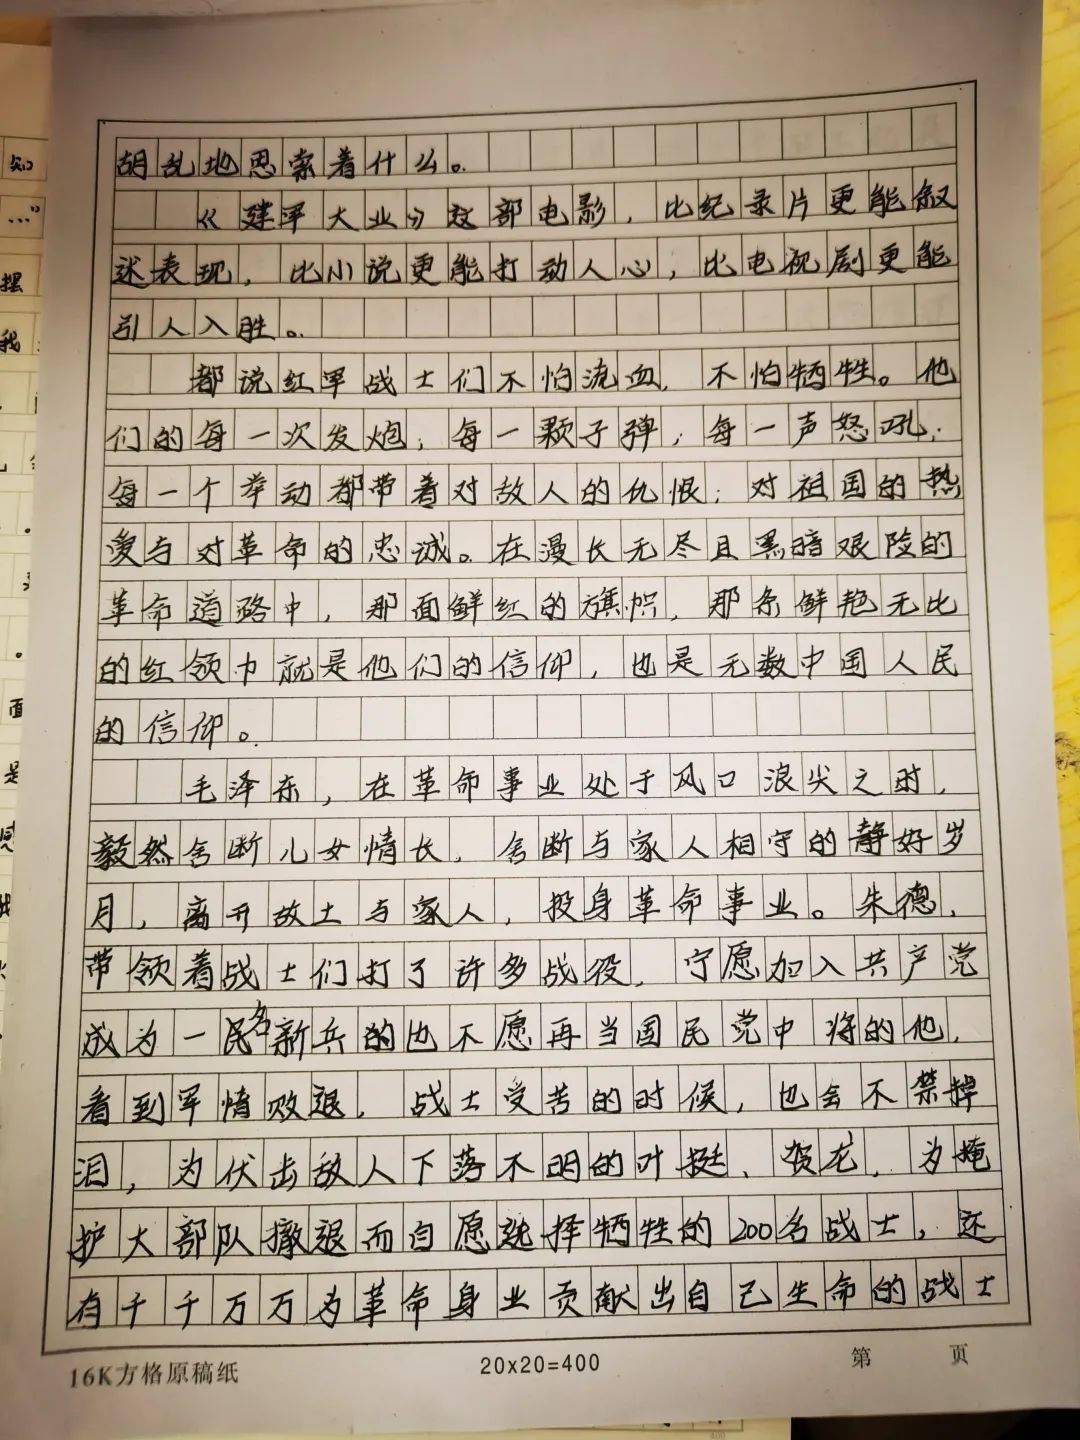 胡乱地思索着什么。
《建军大业》这部电影，比纪录片更能叙
述表现，比小说更能打动人心，比电视剧更能
引人入胜。
都说红军战士们不怕流血，不怕牺牲。他
们的每一次发炮；每一颗子弹；每一声怒吼；
每一个举动都带着对敌人的仇恨；对祖国的热
爱与对革命的忠诚。在漫长无尽且黑暗艰险的
革命道路中，那面鲜红的旗帜，那条鲜艳无比
的红领巾就是他们的信仰，也是无数中国人民
的信仰。
毛泽东，在革命事业处于风口浪尖之时，
毅然舍断儿女情长，舍断与家人相守的静好岁
月，离开故土与家人，投身革命事业。朱德，
带领着战士们打了许多战役，宁愿加入共产党
成为一名新兵的也不愿再当国民党中将的他，
看到军情败退，战士受苦的时候，也会不禁掉
泪，为伏击敌人下落不明的叶挺、贺龙，为掩
护大部队撤退而自愿选择牺牲的200名战士，还
有千千万万为革命身业贡献出自己生命的战士
16K方格原稿纸
20x20=400
第 页
知
…”
摆
我
面
是